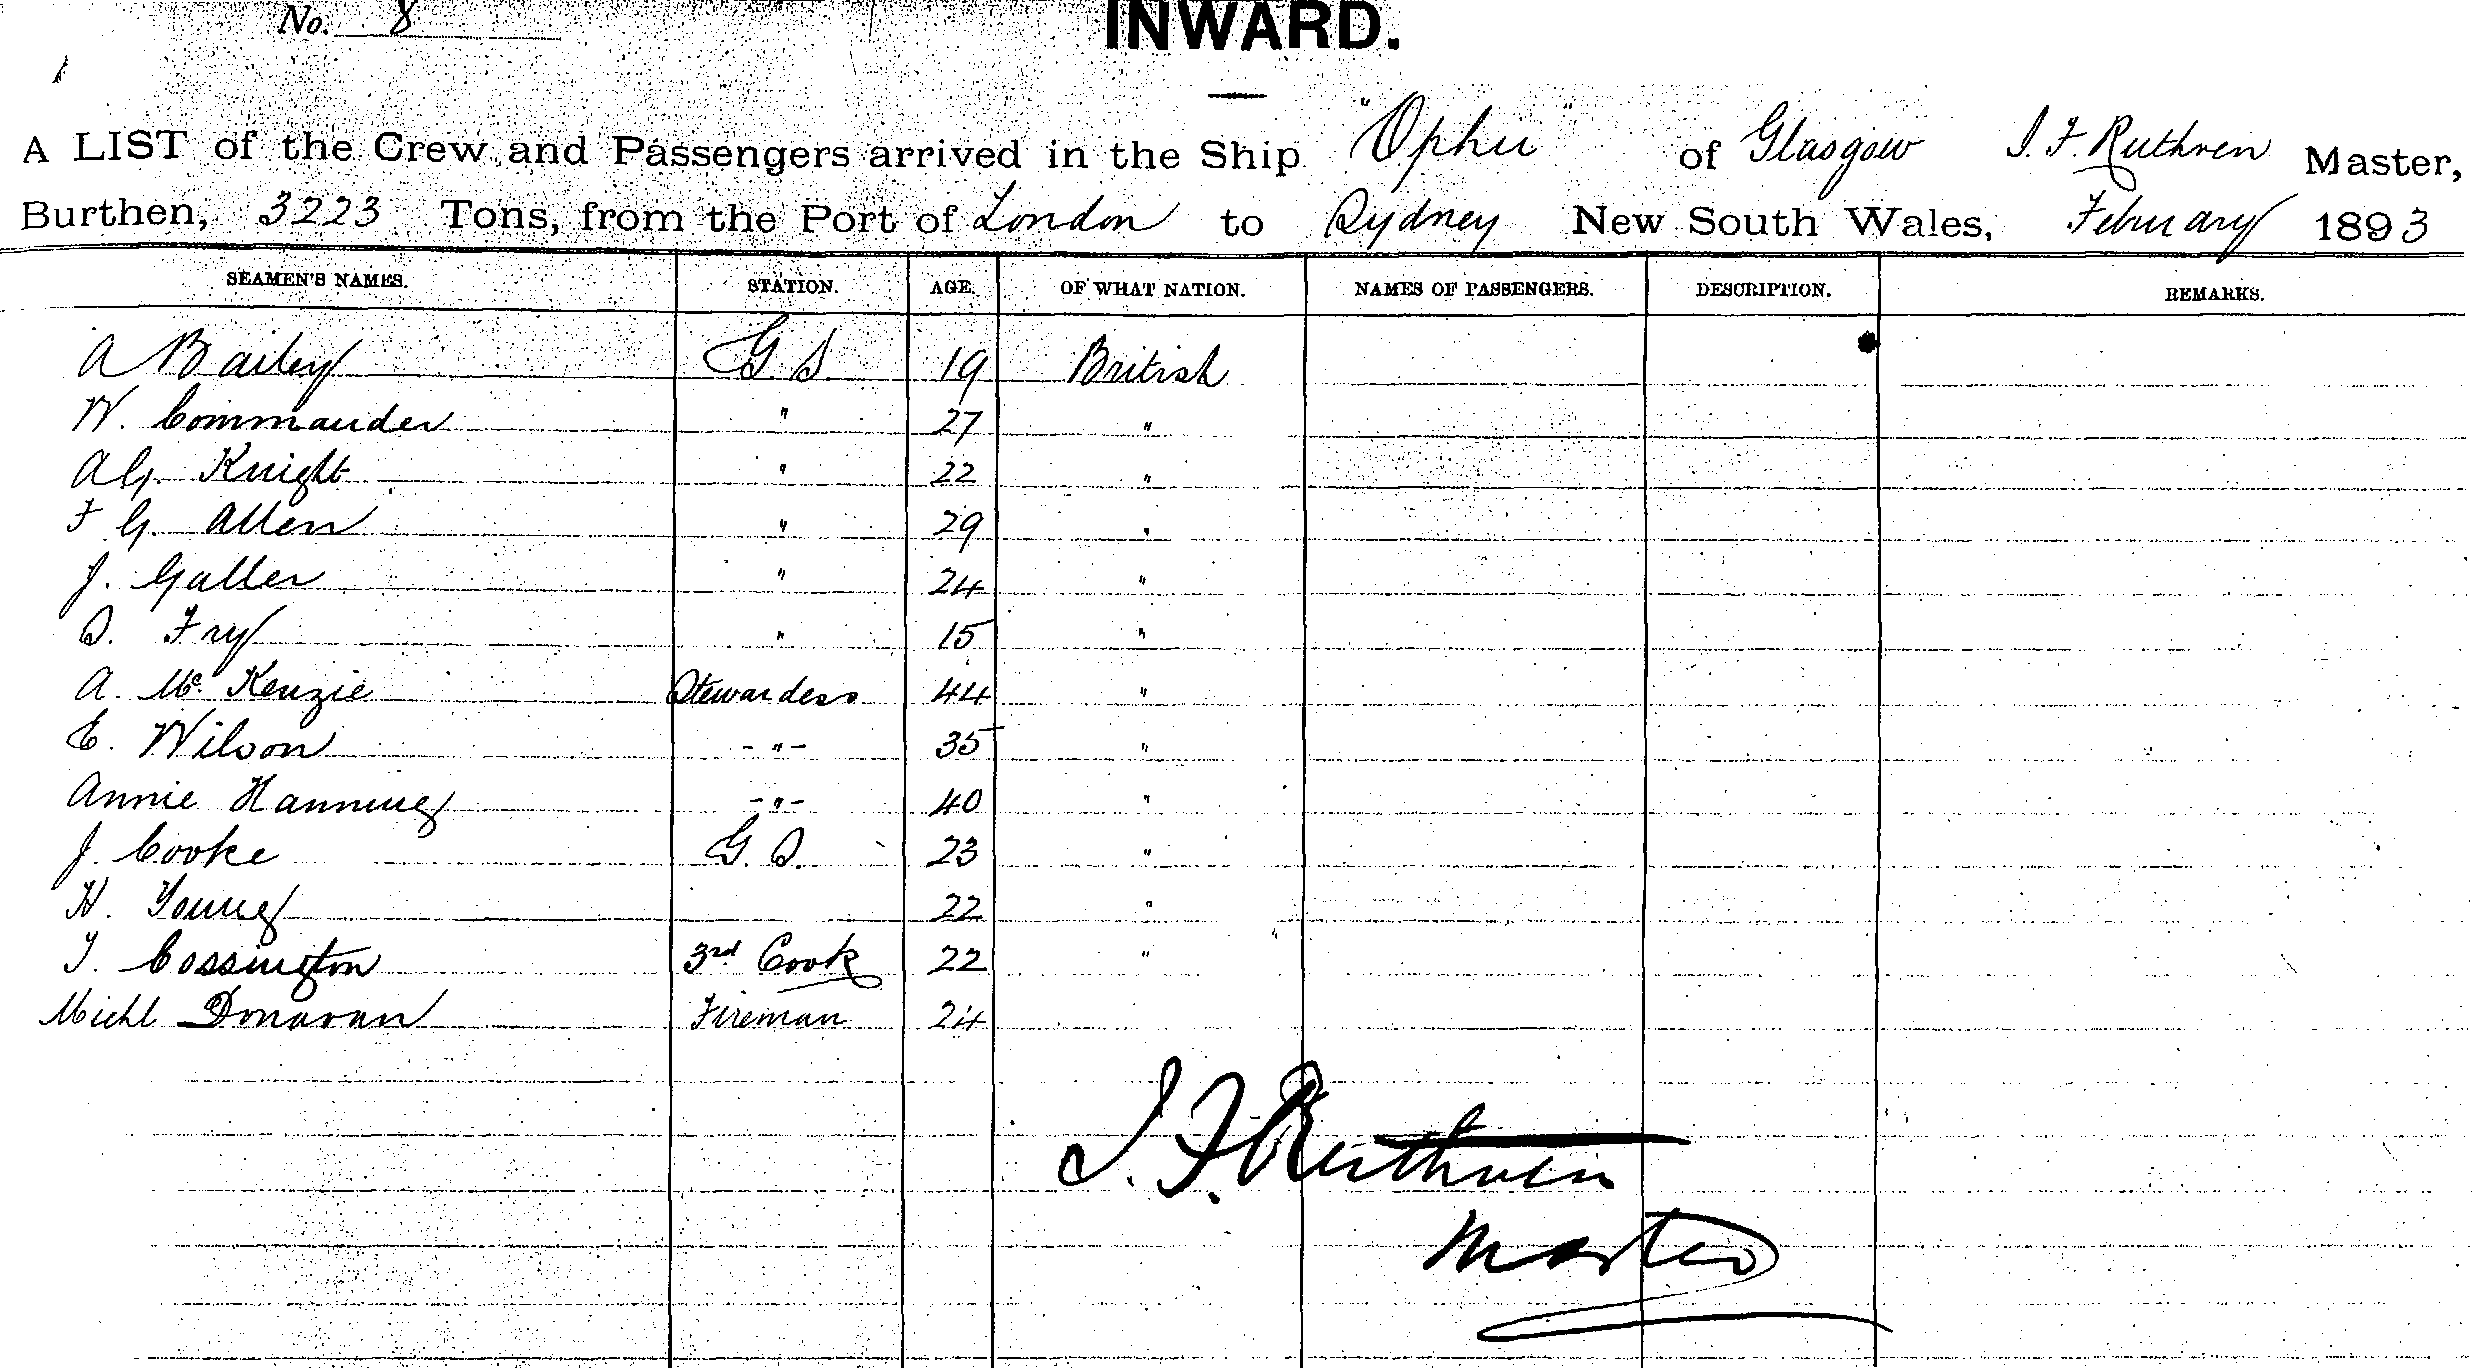 No. 8
INWARD.
A LIST of the Crew and Passengers arrived in the Ship "Ophir" of Glasgow J. F. Ruthven Master,
Burthen, 3223 Tons, from the Port of London to Sydney New South Wales, February 1893
SEAMEN'S NAMES. STATION. AGE. OF WHAT NATION. NAMES OF PASSENGERS. DESCRIPTION. REMARKS.
A Bailey G. S. 19 British
W. Commander " 27 "
A G. Knight " 22 "
F G. Allen " 29 "
J. Galler " 24 "
S. Fry " 15 "
A. Mc Kenzie Stewardess 44 "
E. Wilson - " - 35 "
Annie Hanning - " - 40 "
J. Cooke G. S. 23 "
H. Young 22 "
T. Cossington 3rd Cook 22 "
Michl Donavan Fireman 24
J. F. Ruthven
Master